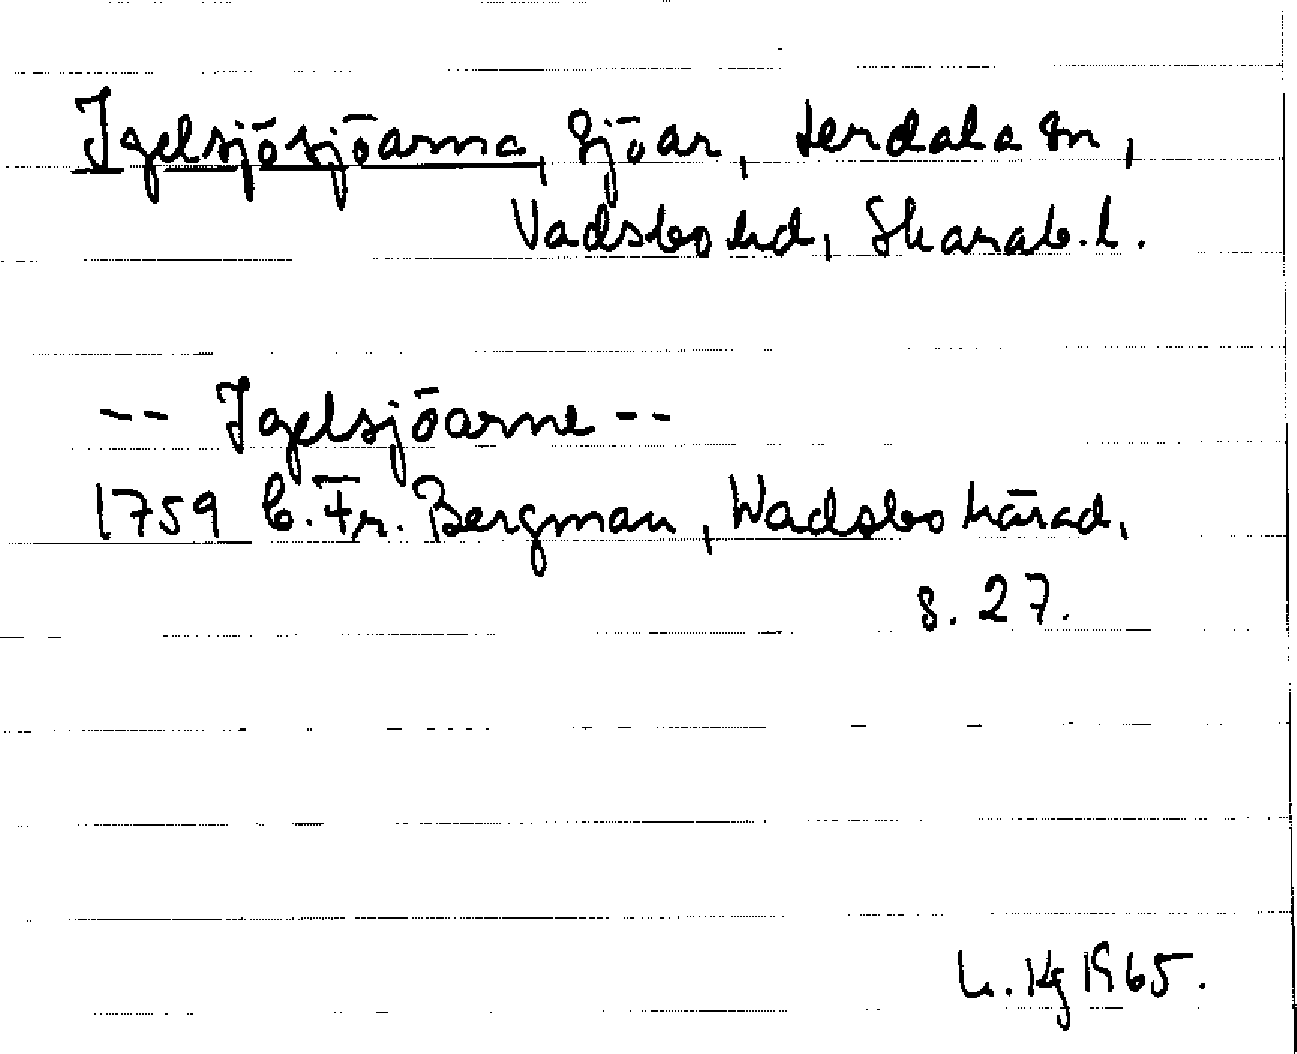 Igelsjösjöarna, Sjöar, Lerdala sn,
Vadsbo hd, Skarab.l.
-- Igelsjöarne --
1759 C. Fr. Bergman, Wadsbo härad,
s. 27.
L. Kg 1965.